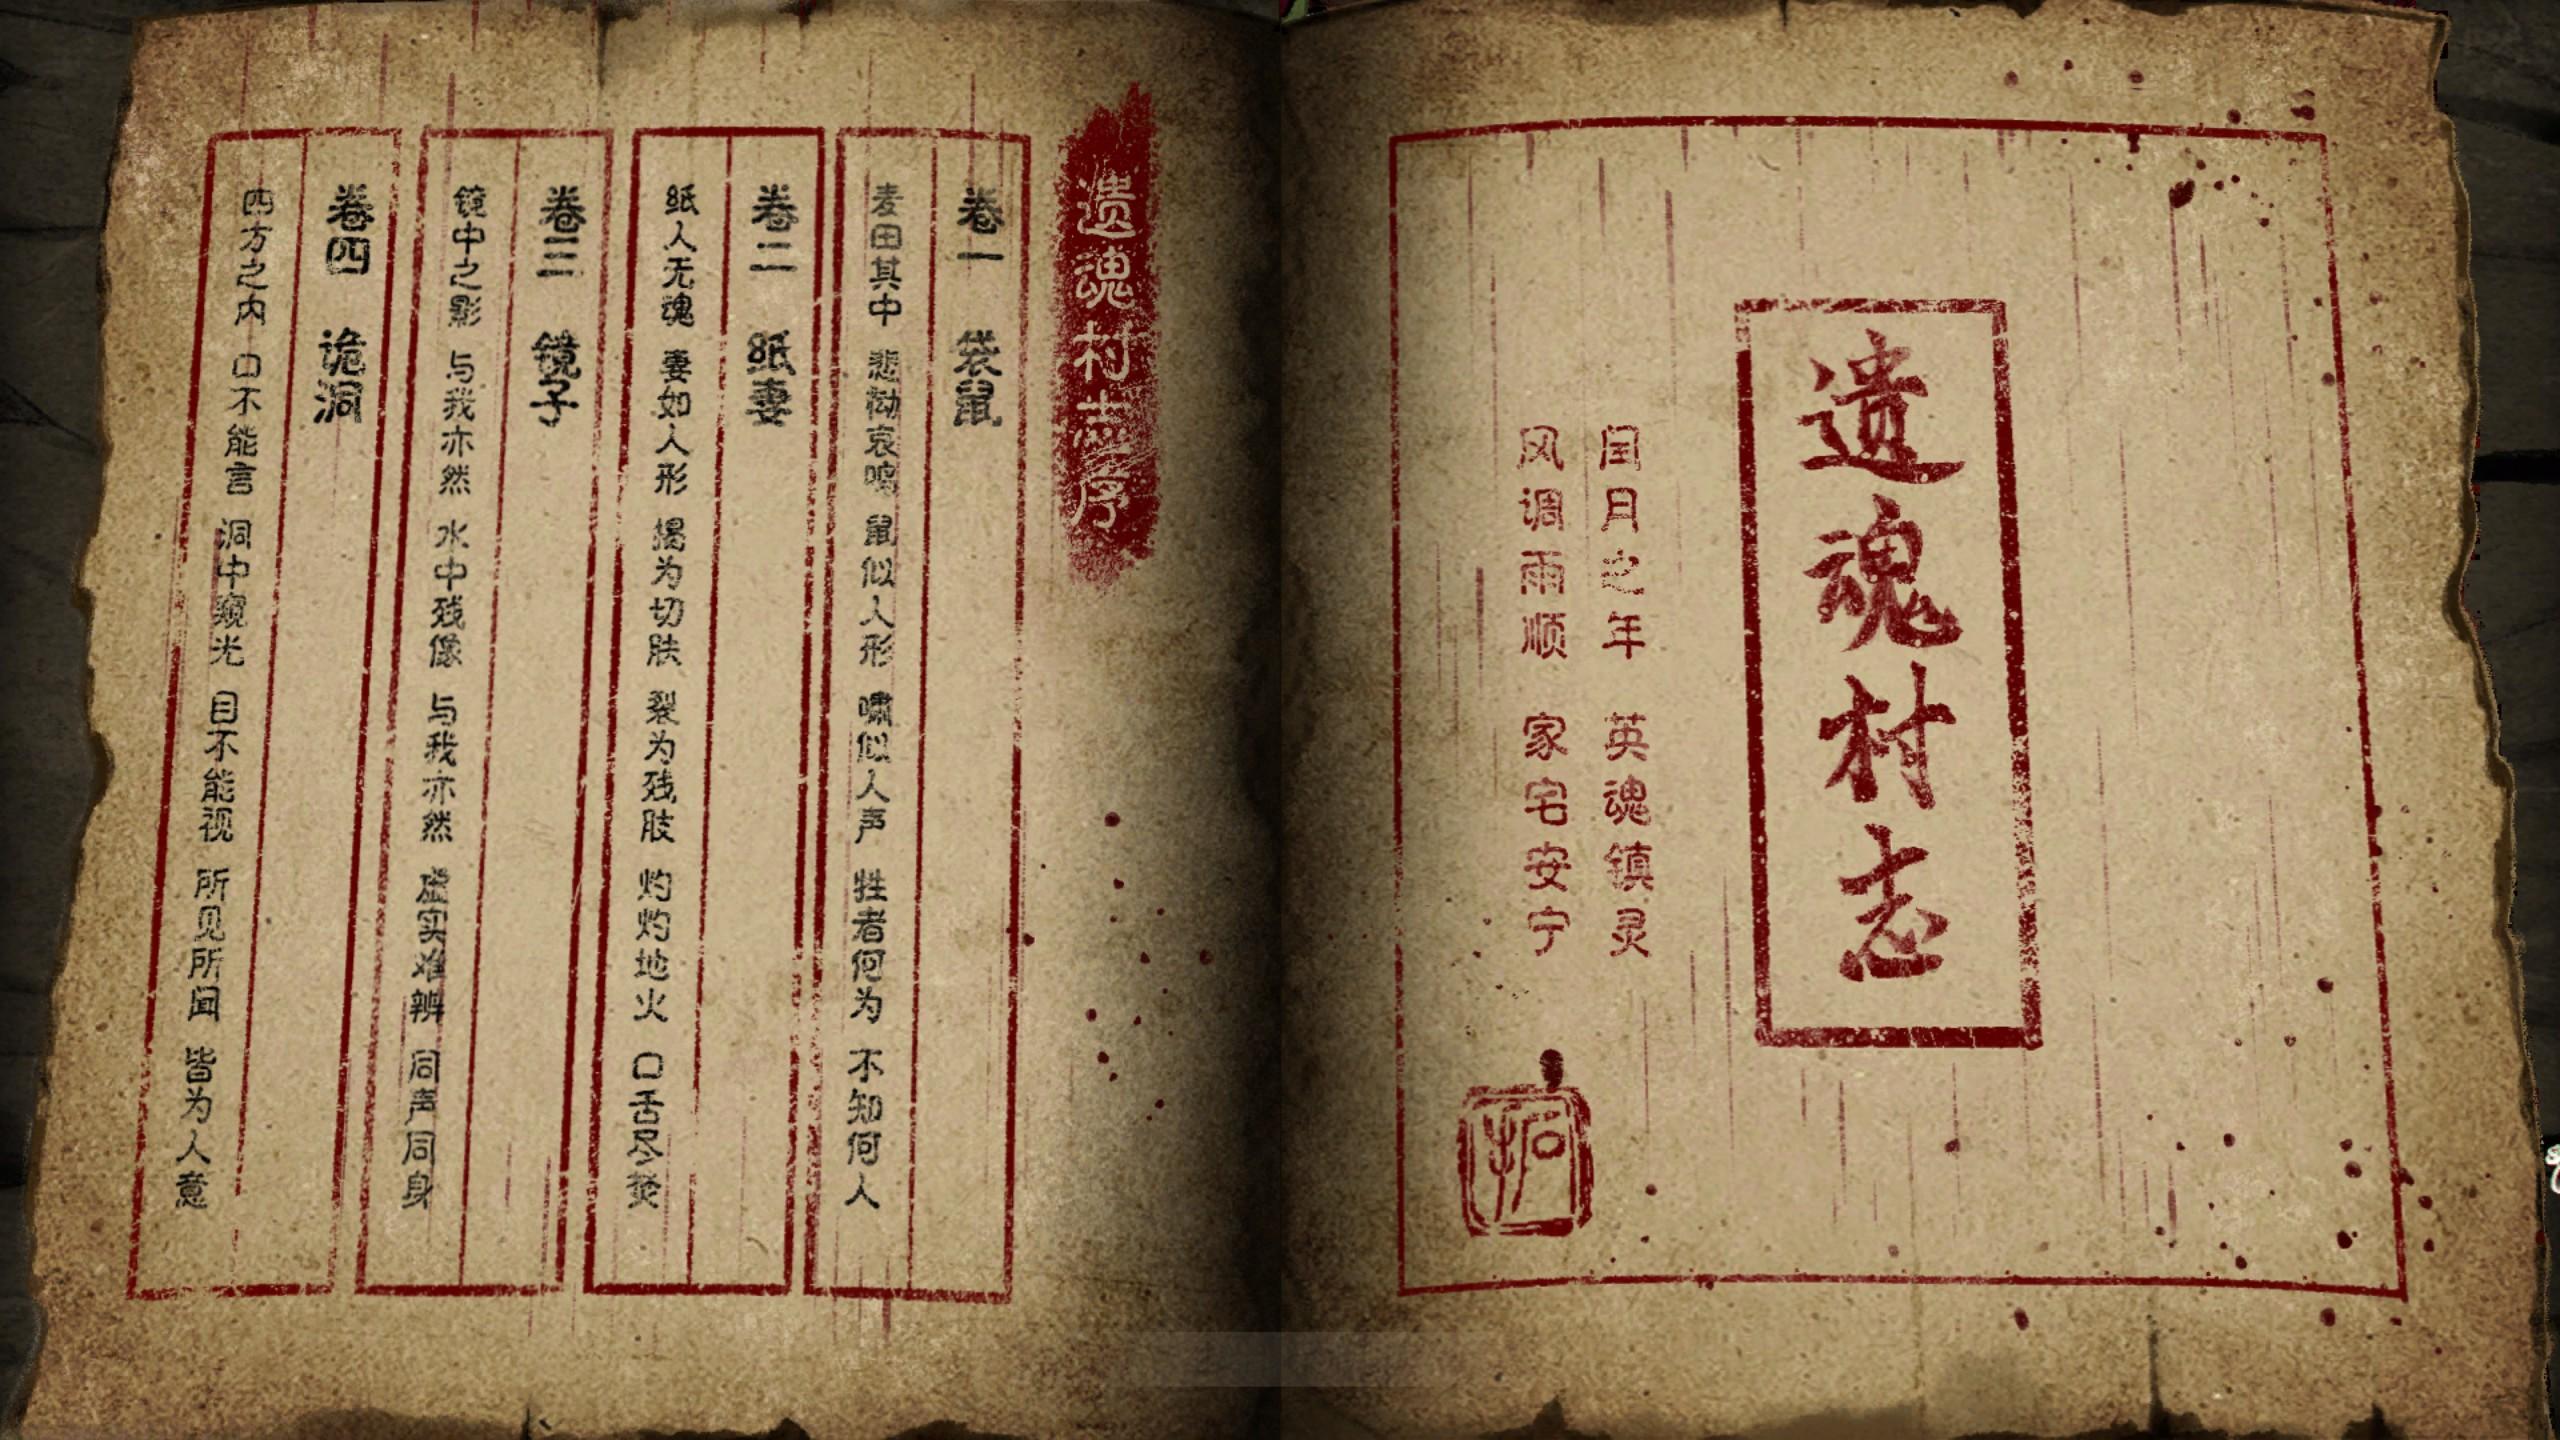 遗魂村志
闰月之年 英魂镇灵
风调雨顺 家宅安宁
遗魂村志序
卷一 袋鼠
麦田其中 悲恸哀鸣 鼠似人形 啸似人声 牲者何为 不知何人
卷二 纸妻
纸人无魂 妻如人形 揭为切肤 裂为残肢 灼灼地火 口舌尽焚
卷三 镜子
镜中之影 与我亦然 水中残像 与我亦然 虚实难辨 同声同身
卷四 诡洞
四方之内 口不能言 洞中窥光 目不能视 所见所闻 皆为人意